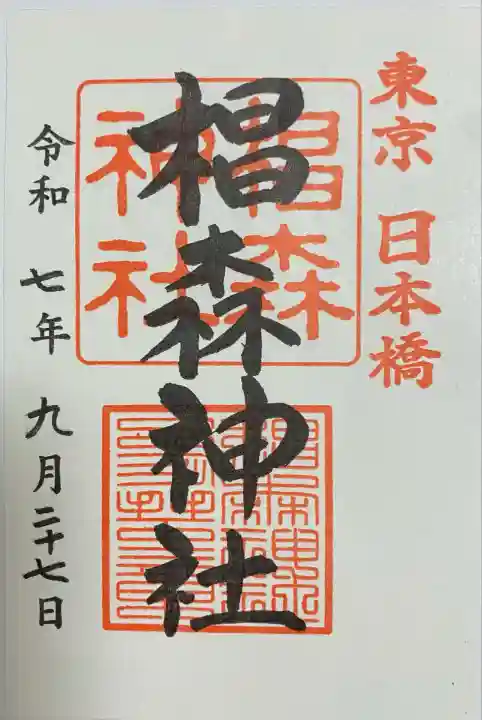 東京 日本橋
椙森神社
椙森
神社
令和 七年 九月二十七日